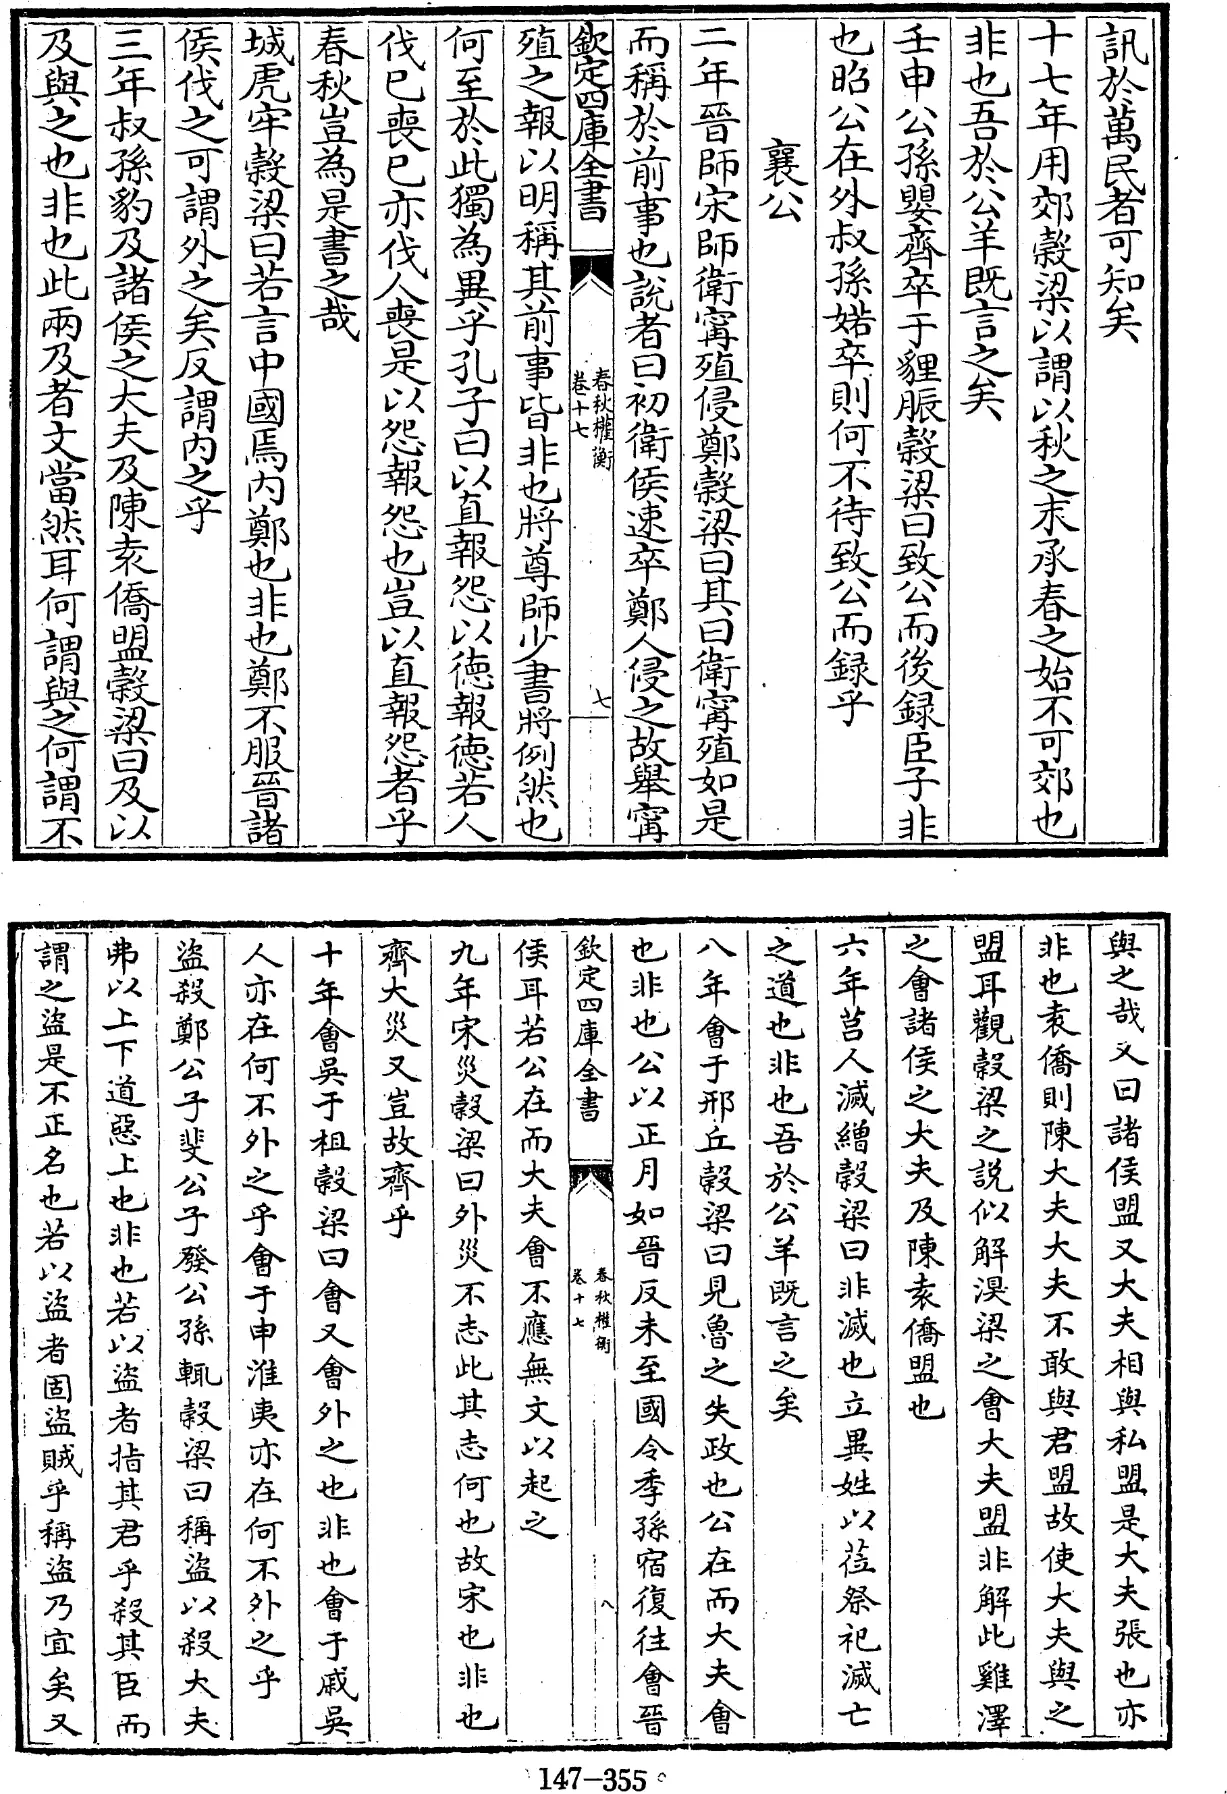 訊於萬民者可知矣
十七年用郊穀梁以謂以秋之末承春之始不可郊也
非也吾於公羊既言之矣
壬申公孫嬰齊卒于貍脤穀梁曰致公而後録臣子非
也昭公在外叔孫婼卒則何不待致公而録乎
襄公
二年晉師宋師衛甯殖侵鄭穀梁曰其曰衛甯殖如是
而稱於前事也說者曰初衛侯速卒鄭人侵之故舉甯
欽定四庫全書
春秋權衡
卷十七
七
殖之報以明稱其前事皆非也將尊師少書將例然也
何至於此獨為異乎孔子曰以直報怨以徳報徳若人
伐已喪已亦伐人喪是以怨報怨也豈以直報怨者乎
春秋豈為是書之哉
城虎牢穀梁曰若言中國焉内鄭也非也鄭不服晉諸
侯伐之可謂外之矣反謂内之乎
三年叔孫豹及諸侯之大夫及陳袁僑盟穀梁曰及以
及與之也非也此兩及者文當然耳何謂與之何謂不
與之哉又曰諸侯盟又大夫相與私盟是大夫張也亦
非也袁僑則陳大夫大夫不敢與君盟故使大夫與之
盟耳觀穀梁之説似解溴梁之會大夫盟非解此雞澤
之會諸侯之大夫及陳袁僑盟也
六年莒人滅繒穀梁曰非滅也立異姓以莅祭祀滅亡
之道也非也吾於公羊既言之矣
八年會于邢丘穀梁曰見魯之失政也公在而大夫會
也非也公以正月如晉反未至國令季孫宿復往會晉
欽定四庫全書
春秋權衡
卷十七
八
侯耳若公在而大夫會不應無文以起之
九年宋災穀梁曰外災不志此其志何也故宋也非也
齊大災又豈故齊乎
十年會吳于柤穀梁曰會又會外之也非也會于戚吳
人亦在何不外之乎會于申淮夷亦在何不外之乎
盜殺鄭公子斐公子發公孫輒穀梁曰稱盜以殺大夫
弗以上下道惡上也非也若以盜者指其君乎殺其臣而
謂之盜是不正名也若以盜者固盜賊乎稱盜乃宜矣又
147-355